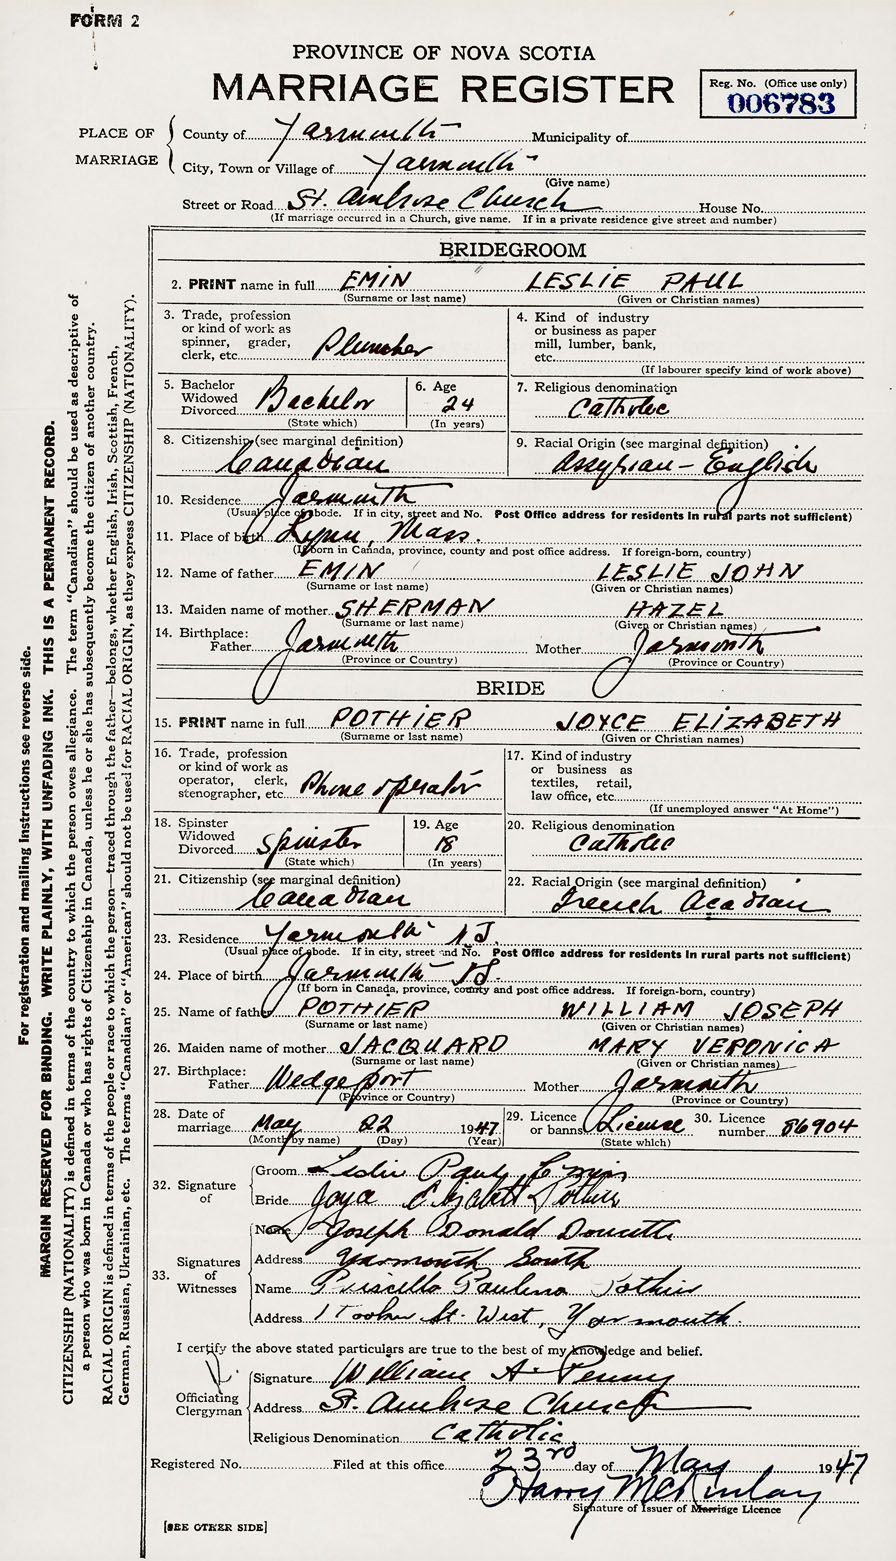 FORM 2
PROVINCE OF NOVA SCOTIA
MARRIAGE REGISTER
Reg. No. (Office use only)
006783
PLACE OF MARRIAGE
County of Yarmouth Municipality of
City, Town or Village of Yarmouth
(Give name)
Street or Road St. Ambrose Church House No.
(If marriage occurred in a Church, give name. If in a private residence give street and number)
BRIDEGROOM
2. PRINT name in full EMIN LESLIE PAUL
(Surname or last name) (Given or Christian names)
3. Trade, profession or kind of work as spinner, grader, clerk, etc. Plumber
4. Kind of industry or business as paper mill, lumber, bank, etc.
(If labourer specify kind of work above)
5. Bachelor Widowed Divorced Bachelor
(State which)
6. Age 24
(In years)
7. Religious denomination Catholic
8. Citizenship (see marginal definition) Canadian
9. Racial Origin (see marginal definition) Assyrian - English
10. Residence Yarmouth
(Usual place of abode. If in city, street and No. Post Office address for residents in rural parts not sufficient)
11. Place of birth Lynn, Mass.
(If born in Canada, province, county and post office address. If foreign-born, country)
12. Name of father EMIN LESLIE JOHN
(Surname or last name) (Given or Christian names)
13. Maiden name of mother SHERMAN HAZEL
(Surname or last name) (Given or Christian names)
14. Birthplace: Father Yarmouth Mother Yarmouth
(Province or Country) (Province or Country)
BRIDE
15. PRINT name in full POTHIER JOYCE ELIZABETH
(Surname or last name) (Given or Christian names)
16. Trade, profession or kind of work as operator, clerk, stenographer, etc. Phone operator
17. Kind of industry or business as textiles, retail, law office, etc.
(If unemployed answer "At Home")
18. Spinster Widowed Divorced Spinster
(State which)
19. Age 18
(In years)
20. Religious denomination Catholic
21. Citizenship (see marginal definition) Canadian
22. Racial Origin (see marginal definition) French Acadian
23. Residence Yarmouth N.S.
(Usual place of abode. If in city, street and No. Post Office address for residents in rural parts not sufficient)
24. Place of birth Yarmouth N.S.
(If born in Canada, province, county and post office address. If foreign-born, country)
25. Name of father POTHIER WILLIAM JOSEPH
(Surname or last name) (Given or Christian names)
26. Maiden name of mother JACQUARD MARY VERONICA
(Surname or last name) (Given or Christian names)
27. Birthplace: Father Wedgeport Mother Yarmouth
(Province or Country) (Province or Country)
28. Date of marriage May 22 1947
(Month by name) (Day) (Year)
29. Licence or banns License
(State which)
30. Licence number 86904
32. Signature of
Groom Leslie Paul Emin
Bride Joyce Elizabeth Pothier
33. Signatures of Witnesses
Name Joseph Donald Doucette
Address Yarmouth South
Name Priscilla Pauline Pothier
Address 1 Tooker St. West, Yarmouth.
I certify the above stated particulars are true to the best of my knowledge and belief.
Officiating Clergyman
Signature William A. Penny
Address St. Ambrose Church
Religious Denomination Catholic
Registered No. Filed at this office 23rd day of May 1947
Harry McKinlay
Signature of Issuer of Marriage Licence
[SEE OTHER SIDE]
For registration and mailing instructions see reverse side.
MARGIN RESERVED FOR BINDING. WRITE PLAINLY, WITH UNFADING INK. THIS IS A PERMANENT RECORD.
CITIZENSHIP (NATIONALITY) is defined in terms of the country to which the person owes allegiance. The term "Canadian" should be used as descriptive of
a person who was born in Canada or who has rights of Citizenship in Canada, unless he or she has subsequently become the citizen of another country.
RACIAL ORIGIN is defined in terms of the people or race to which the person—traced through the father—belongs, whether English, Irish, Scottish, French,
German, Russian, Ukrainian, etc. The terms "Canadian" or "American" should not be used for RACIAL ORIGIN, as they express CITIZENSHIP (NATIONALITY).